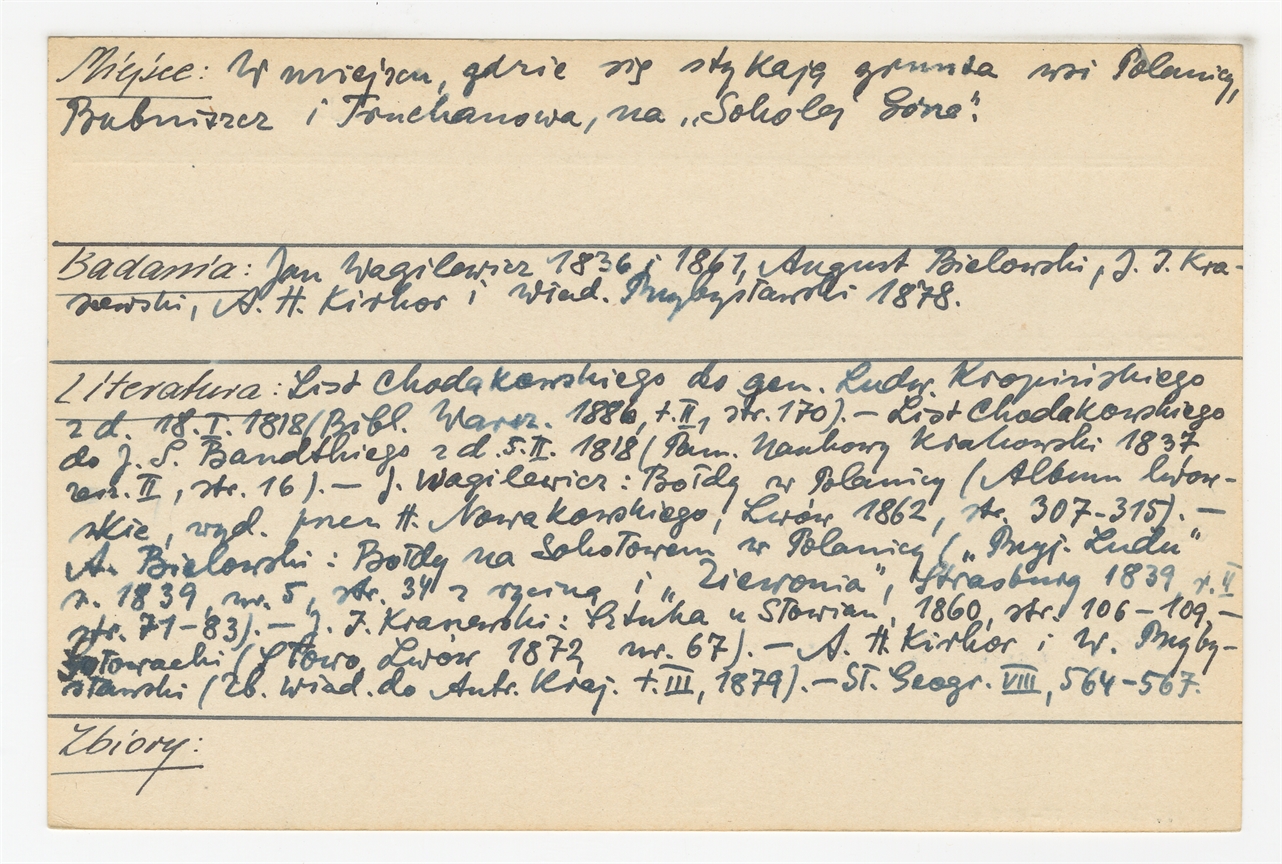 Miejsce: W miejscu, gdzie się stykają grunta wsi Polanicy,
Bubniszcz i Truchanowa, na „Sokolej Górze”.
Badania: Jan Wagilewicz 1836 i 1861, August Bielowski, J. I. Kra-
szewski, A. H. Kirkor i Wład. Przybysławski 1878.
Literatura: List Chodakowskiego do gen. Ludw. Kropińskiego
z d. 18.I.1818 (Bibl. Warsz. 1886, t. II, str. 170). – List Chodakowskiego
do J. S. Bandtkiego z d. 5.II. 1818 (Pam. Naukowy Krakowski 1837
zesz. II, str. 16). – J. Wagilewicz: Bołdy w Polanicy (Album lwow-
skie, wyd. przez H. Nowakowskiego, Lwów 1862, str. 307-315). –
A. Bielowski: Bołdy na Sokołowem w Polanicy („Przyj. Ludu”
r. 1839, nr. 5, str. 34 z ryciną i „Ziewonia”, Strasburg 1839, r. II
str. 71-83). – J. I. Kraszewski: Sztuka u Słowian, 1860, str. 106-109. –
Gołowacki (Słowo, Lwów 1872 nr. 67). – A. H. Kirkor i W. Przyby-
sławski (Zb. Wiad. do Antr. Kraj. t. III, 1879). – Sł. Geogr. VIII, 564-567.
Zbiory: